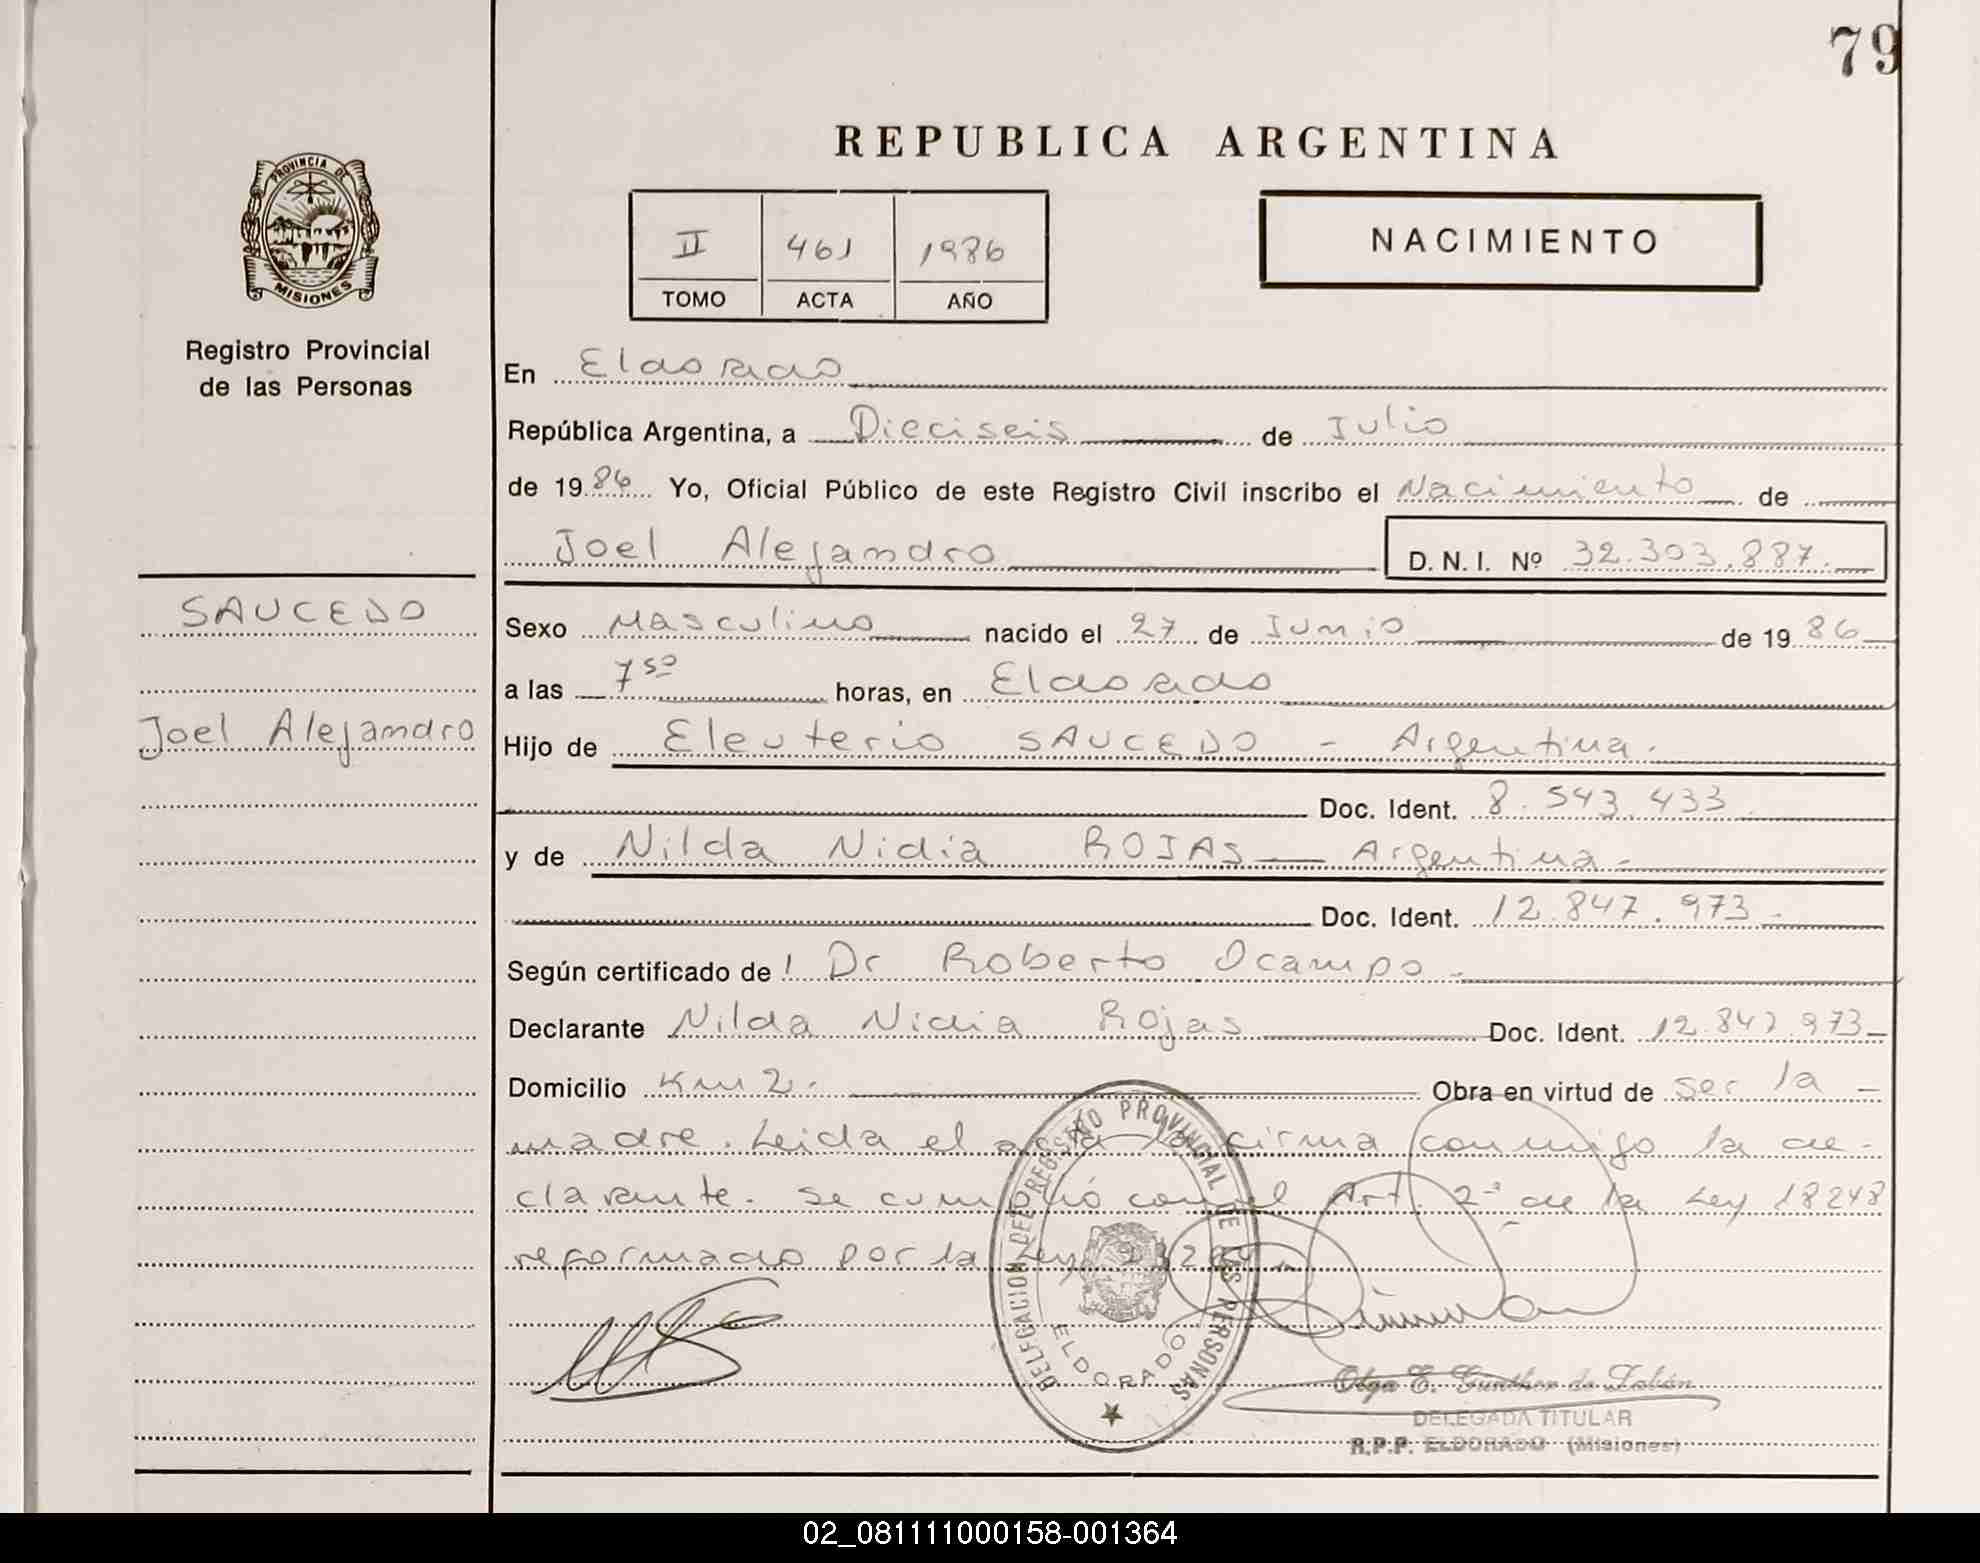 79
REPUBLICA ARGENTINA
PROVINCIA DE
MISIONES
Registro Provincial
de las Personas
II 461 1986
TOMO ACTA AÑO
NACIMIENTO
En Eldorado
República Argentina, a Dieciseis de Julio
de 1986 Yo, Oficial Público de este Registro Civil inscribo el Nacimiento de
Joel Alejandro D. N. I. Nº 32.303.887.
SAUCEDO
Joel Alejandro
Sexo Masculino nacido el 27 de Junio de 1986
a las 7 50 horas, en Eldorado
Hijo de Eleuterio SAUCEDO - Argentina.
Doc. Ident. 8.543.433
y de Nilda Nidia ROJAS — Argentina -
Doc. Ident. 12.847.973 -
Según certificado de l Dr Roberto Ocampo -
Declarante Nilda Nidia Rojas Doc. Ident. 12.847.973
Domicilio Km 2. Obra en virtud de ser la
madre. Leida el acta la firma conmigo la de-
clarante. Se cumplió con el Art. 2º de la Ley 18248
reformado por la Ley
DELEGACION DEL REGISTRO PROVINCIAL DE LAS PERSONAS
ELDORADO
Olga E. Gunther de
DELEGADA TITULAR
R.P.P. ELDORADO (Misiones)
02_081111000158-001364